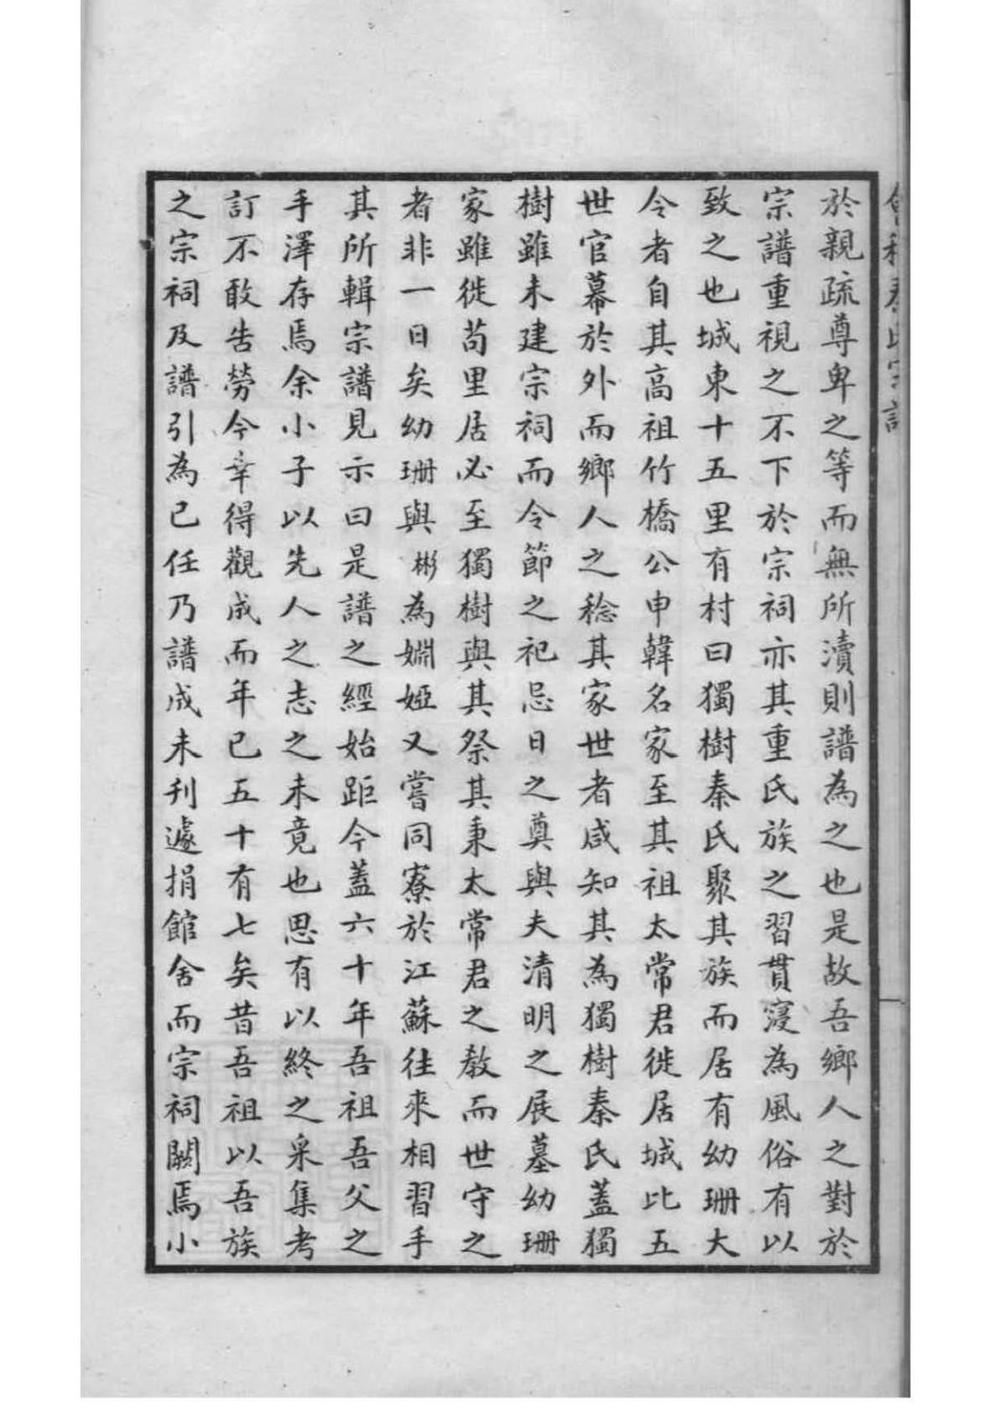 於親疏尊卑之等而無所瀆則譜為之也是故吾鄉人之對於
宗譜重視之不下於宗祠亦其重氏族之習貫寖為風俗有以
致之也城東十五里有村曰獨樹秦氏聚其族而居有幼珊大
令者自其高祖竹橋公申韓名家至其祖太常君徙居城比五
世官幕於外而鄉人之稔其家世者咸知其為獨樹秦氏蓋獨
樹雖未建宗祠而令節之祀忌日之奠與夫清明之展墓幼珊
家雖徙苟里居必至獨樹與其祭其秉太常君之教而世守之
者非一日矣幼珊與彬為婣婭又嘗同寮於江蘇往來相習手
其所輯宗譜見示曰是譜之經始距今蓋六十年吾祖吾父之
手澤存焉余小子以先人之志之未竟也思有以終之采集考
訂不敢告勞今幸得觀成而年已五十有七矣昔吾祖以吾族
之宗祠及譜引為已任乃譜成未刊遽捐館舍而宗祠闕焉小